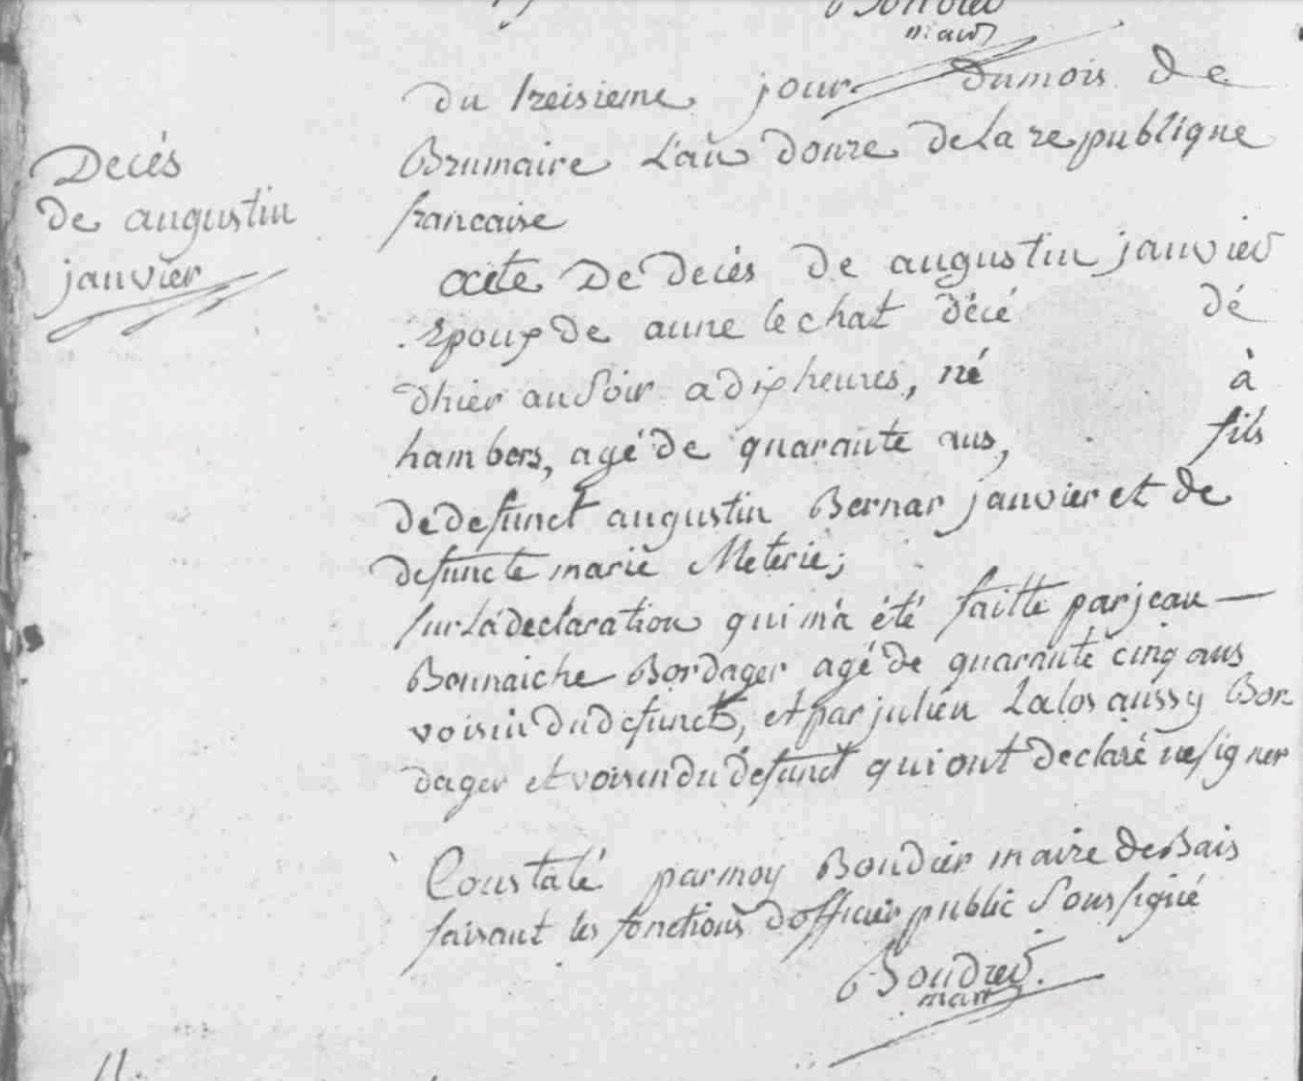 du treisieme jour du mois de
Decés
de augustin
janvier
Brumaire L'an douze de La republique
francaise
acte De Decés de augustin janvier
Epoux de anne lechat décé dé
dhier au Soir a dix heures, né à
hambers, agé de quarante ans, fils
de defunct augustin Bernar janvier et de
defuncte marie Meterie;
sur La declaration qui m'a été faitte par jean —
Bonnaiche Bordager agé de quarante cinq ans
voisin du defunct, et par julien Lalos aussy Bor
dager et voisin du defunct qui ont declaré ne signer
Constaté par moy Boudier maire de Bais
faisant les fonctions d'officier public Soussigné
Boudier
maire